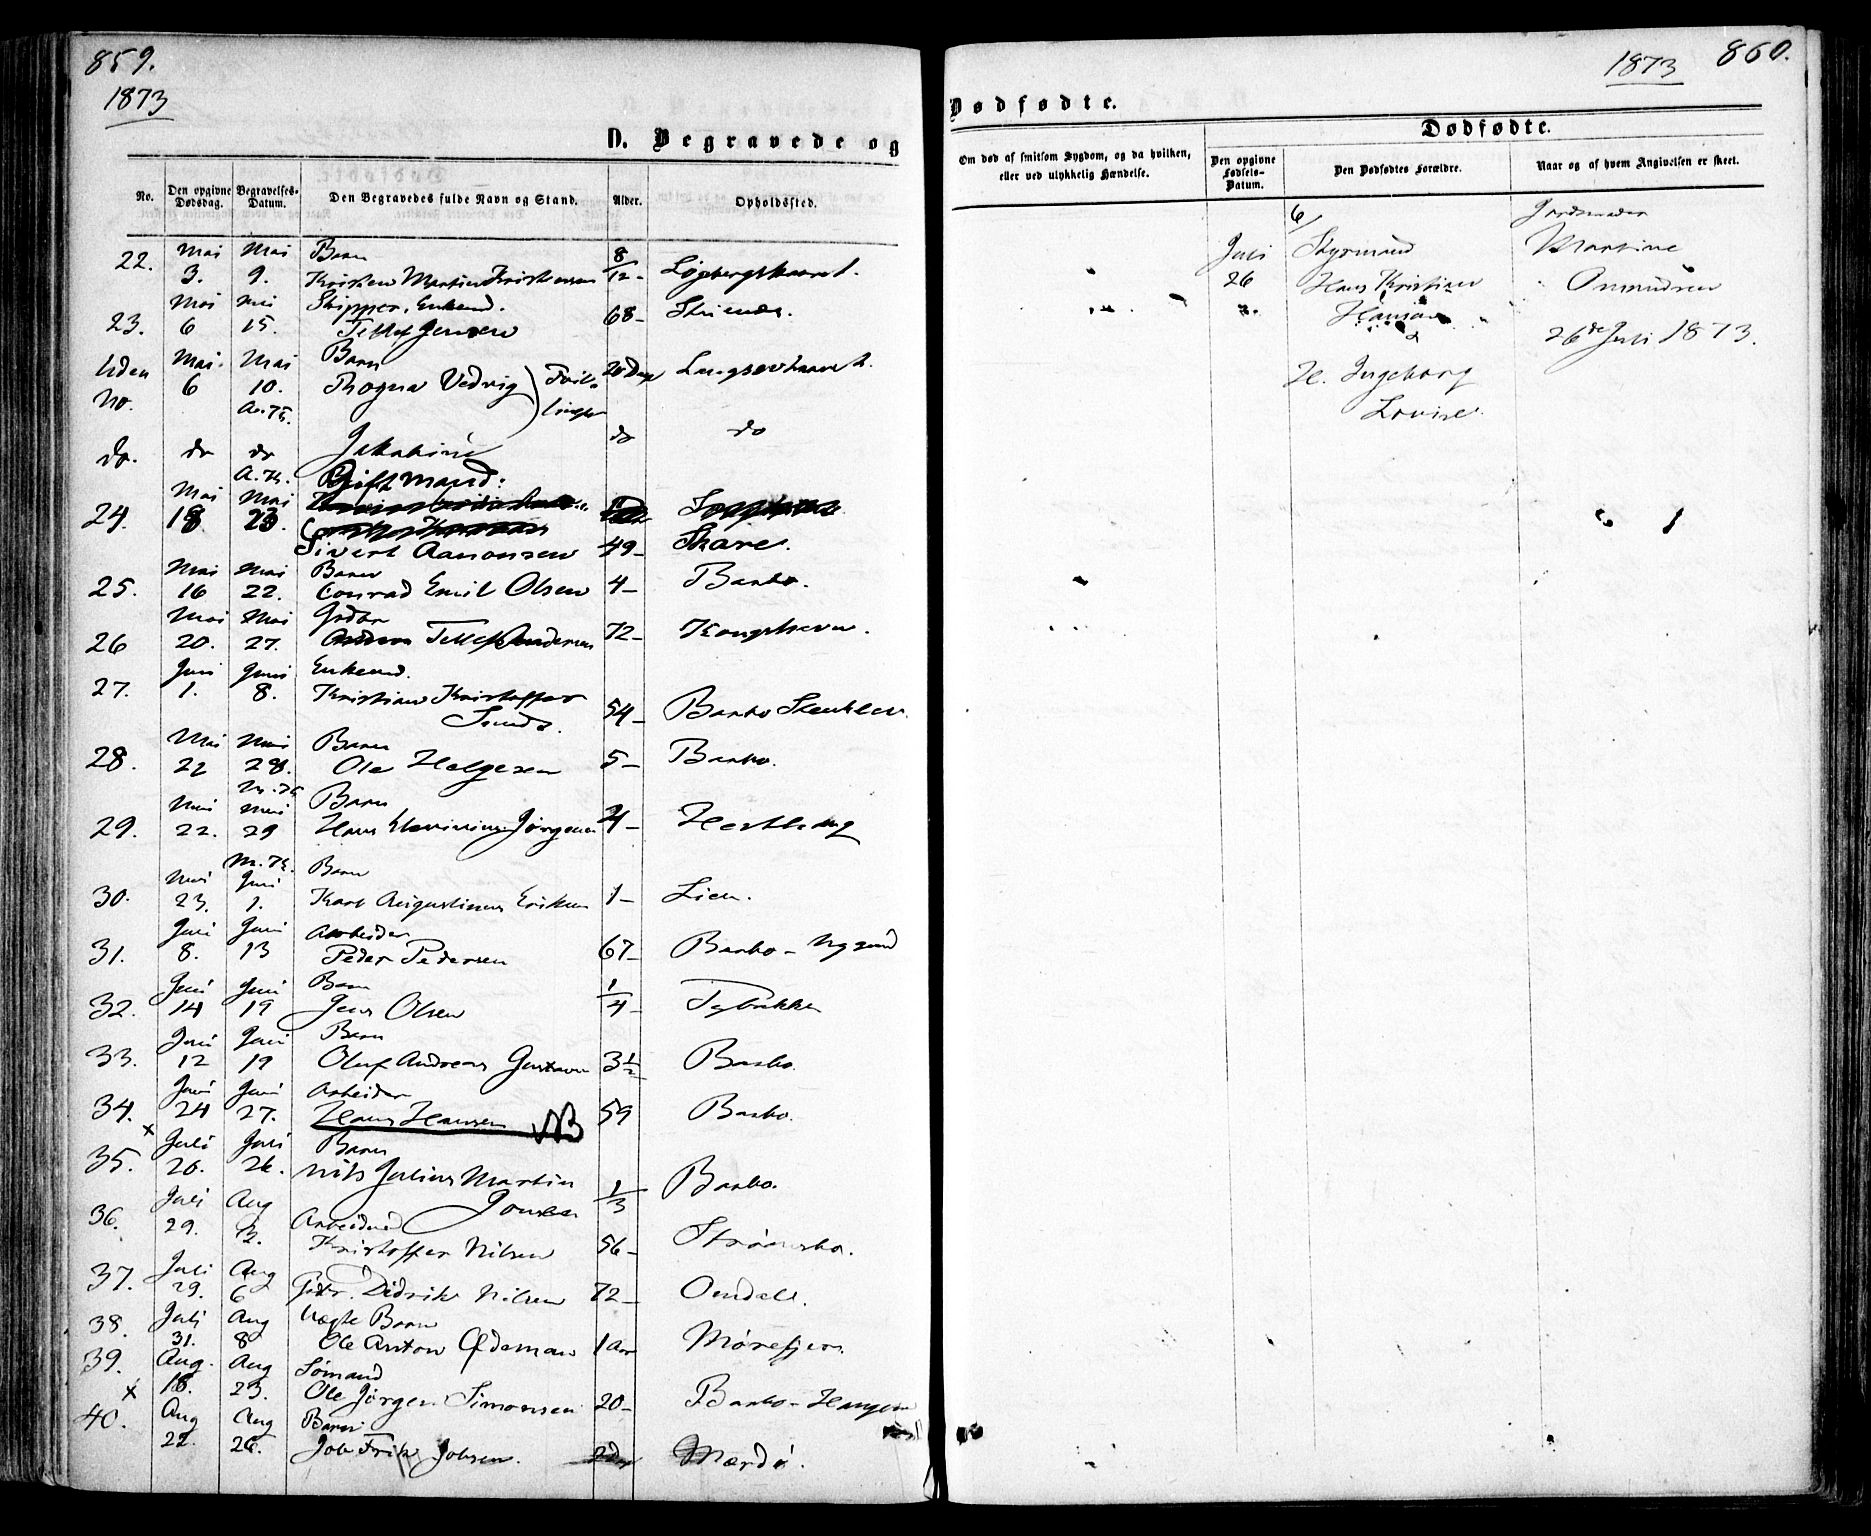 859.
1873
D. Begravede og
No.
Den opgivne Dødsdag.
Begravelses-Datum.
Den Begravedes fulde Navn og Stand.
Alder.
Opholdssted.
22. Mai 3. Mai 9. Barn 8/12
Kristen Martin Kristensen
23. Mai 6 Mai 15. Skipper, Enkemd. 68
Jensen
Uden No. Mai 6 Mai 10. Barn 20 Dage
Vedvig
do. do do Jakobine do do
24. Mai 18 Mai 23. Gift mand:
Sivert Aanonsen 49 Skare.
25. Mai 16 Mai 22. Barn
Conrad Emil Olsen 4 Barbo.
26 Mai 20. Mai 27. Grdbr
Tellef Andersen 72 Kongshavn.
27. Juni 1. Juni 8. Enkemd.
Kristian Kristoffer 54 Barbo
28. Mai 22 Mai 28. Barn
Ole Helgesen 5 Barbo.
29. Mai 22. Mai 29 Barn
Hans Jørgensen
30. Mai 23. Juni 1. Barn
Karl Augustinus Eriksen 1 Lien.
31. Juni 8. Juni 13 Arbeider
Peder Pedersen 67 Barbo -
32. Juni 14 Juni 19 Barn
Jens Olsen 1/4 Tybakken
33. Juni 12 Juni 19 Barn
Oluf Andreas 3 1/2 Barbo.
34. Juni 24 Juni 27. Arbeider
Hans Hansen NB 59 Barbo.
35. Juli 26. Juli Barn
Nils Julius Martin
Jonsen 1/3 Barbo.
36. Juli 29. Aug 3. Arbeidsmd
Kristoffer Nilsen 56 Strømsbo.
37. Juli 29. Aug 6 Gdbr. Didrik Nilsen 72 Omdal.
38. Juli 31. Aug 8 Uægte Barn
Ole Anton 1 Aar Mørefjær.
39. Aug. 18. Aug 23. Sømand
Ole Jørgen Simonsen 20 Barbo -
40. Aug 22. Aug 26. Barn
Jobsen. Mærdø.
1873 860.
Dødfødte.
Om død af smitsom Sygdom, og da hvilken, eller ved ulykkelig Hændelse.
Dødfødte.
Den opgivne Fødsels-Datum.
Den Dødfødtes Forældre.
Naar og af hvem Angivelsen er skeet.
6/ Jordmoder
Juli Styrmand Martine
26 Hans Kristian
Hansen
26de Juli 1873.
H. Ingeborg
Lovise.